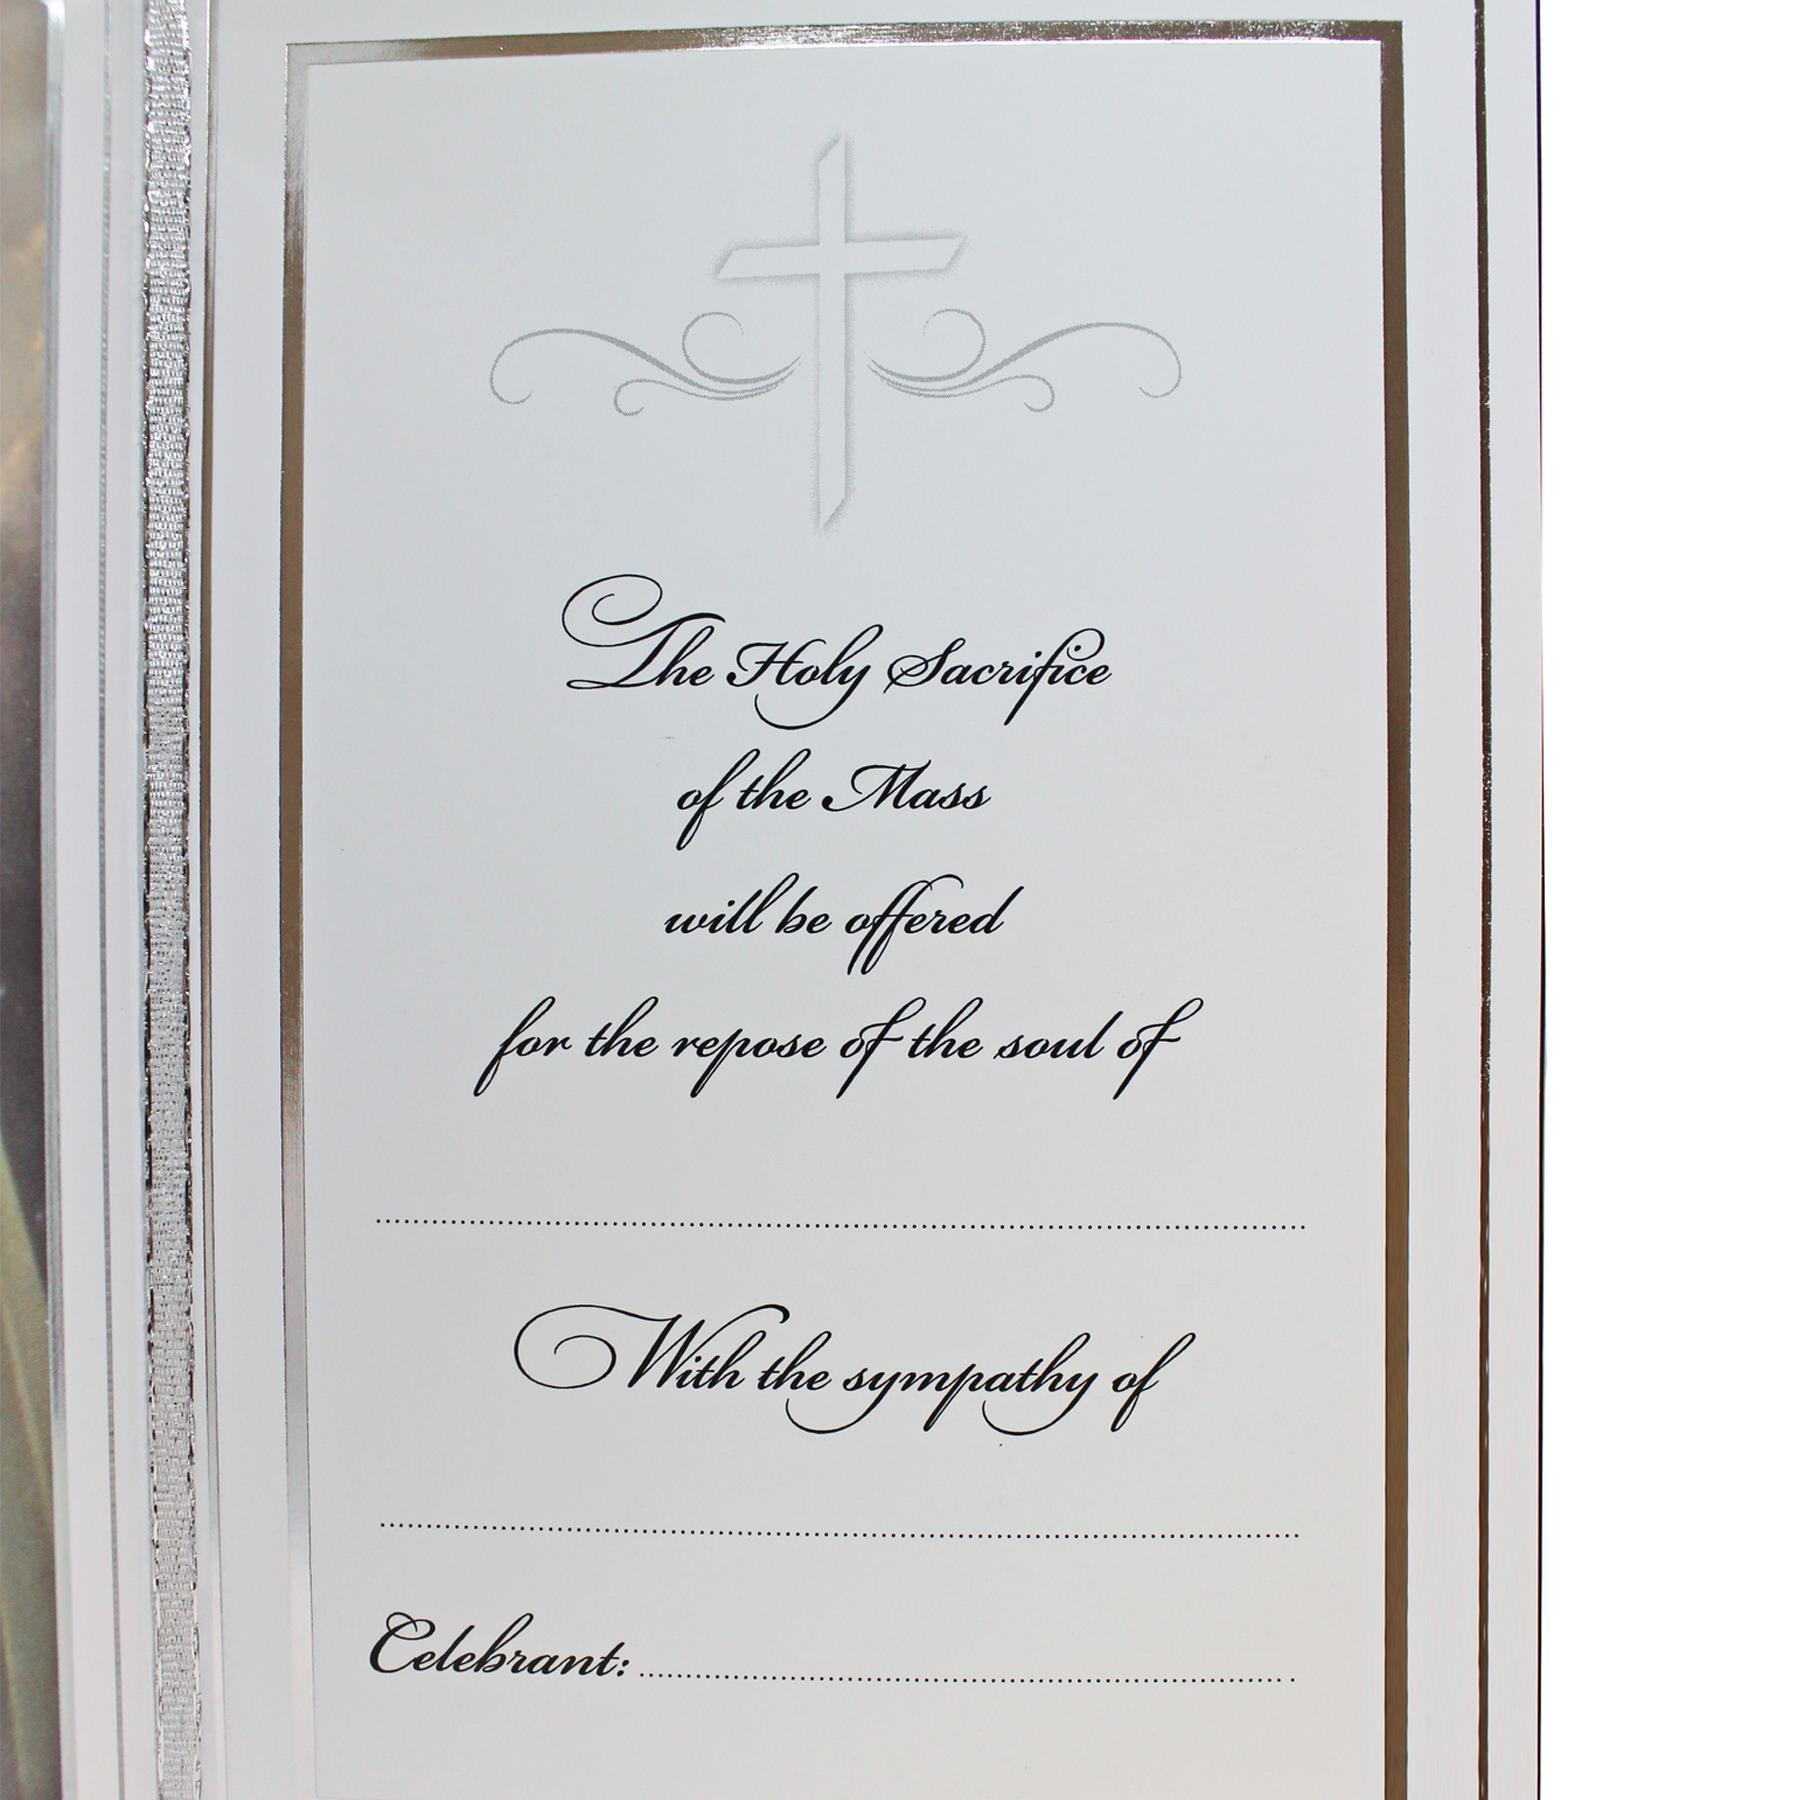 The Holy Sacrifice
of the Mass
will be offered
for the repose of the soul of
With the sympathy of
Celebrant: